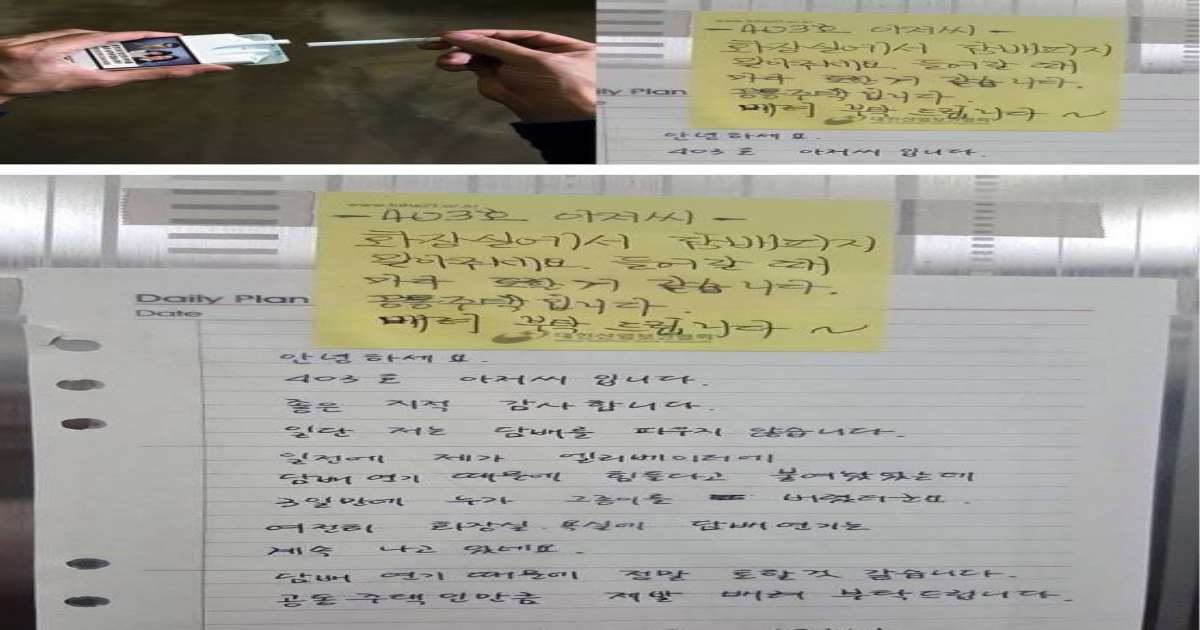 -403호 아저씨-
화장실에서 담배피지
말아주세요. 들어갈 때
마다
공동주택 입니다.
배려 부탁 드립니다 ~
대한산업보건협회
ly Plan
안녕하세요.
403호 아저씨 입니다.
-403호 아저씨-
화장실에서 담배피지
말아주세요. 들어갈 때
마다
공동주택 입니다.
배려 부탁 드립니다 ~
대한산업보건협회
Daily Plan
Date
안녕하세요.
403호 아저씨 입니다.
좋은 지적 감사합니다.
일단 저는 담배를 피우지 않습니다.
일전에 제가 엘리베이터에
담배연기 때문에 힘들다고 붙여놨었는데
3일만에 누가 그종이를 버렸더군요.
여전히 화장실. 욕실에 담배연기는
계속 나고 있네요.
담배 연기 때문에 정말 토할것 같습니다.
공동주택인만큼 제발 배려 부탁드립니다.